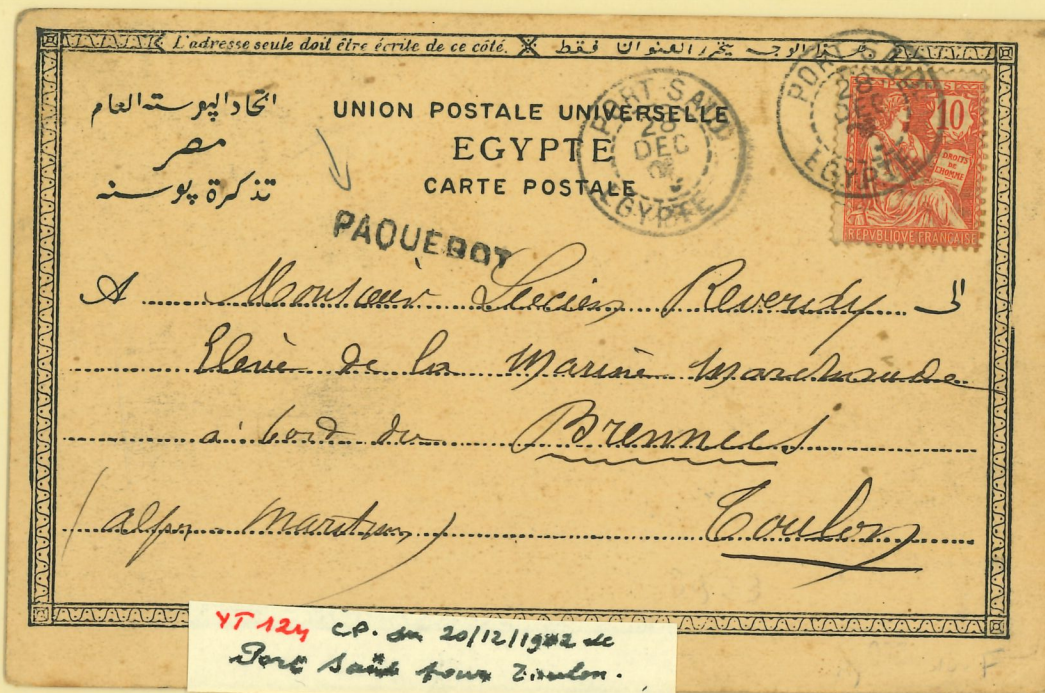 L'adresse seule doit être écrite de ce côté. فقط العنوان يحرر
اتحاد البوستة العام
مصر
تذكرة بوستة
UNION POSTALE UNIVERSELLE
EGYPTE
CARTE POSTALE
PORT SAID
28
DEC
EGYPTE
PORT SAID
28
DEC
EGYPTE
10
DROITS
DE
L'HOMME
REPVBLIQVE FRANÇAISE
PAQUEBOT
A Monsieur Lucien Reverdy الى
Elève de la Marine Marchande
à bord du Brennus
(alpes maritimes) Toulon
YT 124 C.P. du 20/12/1902 de
Port Saïd pour Toulon.